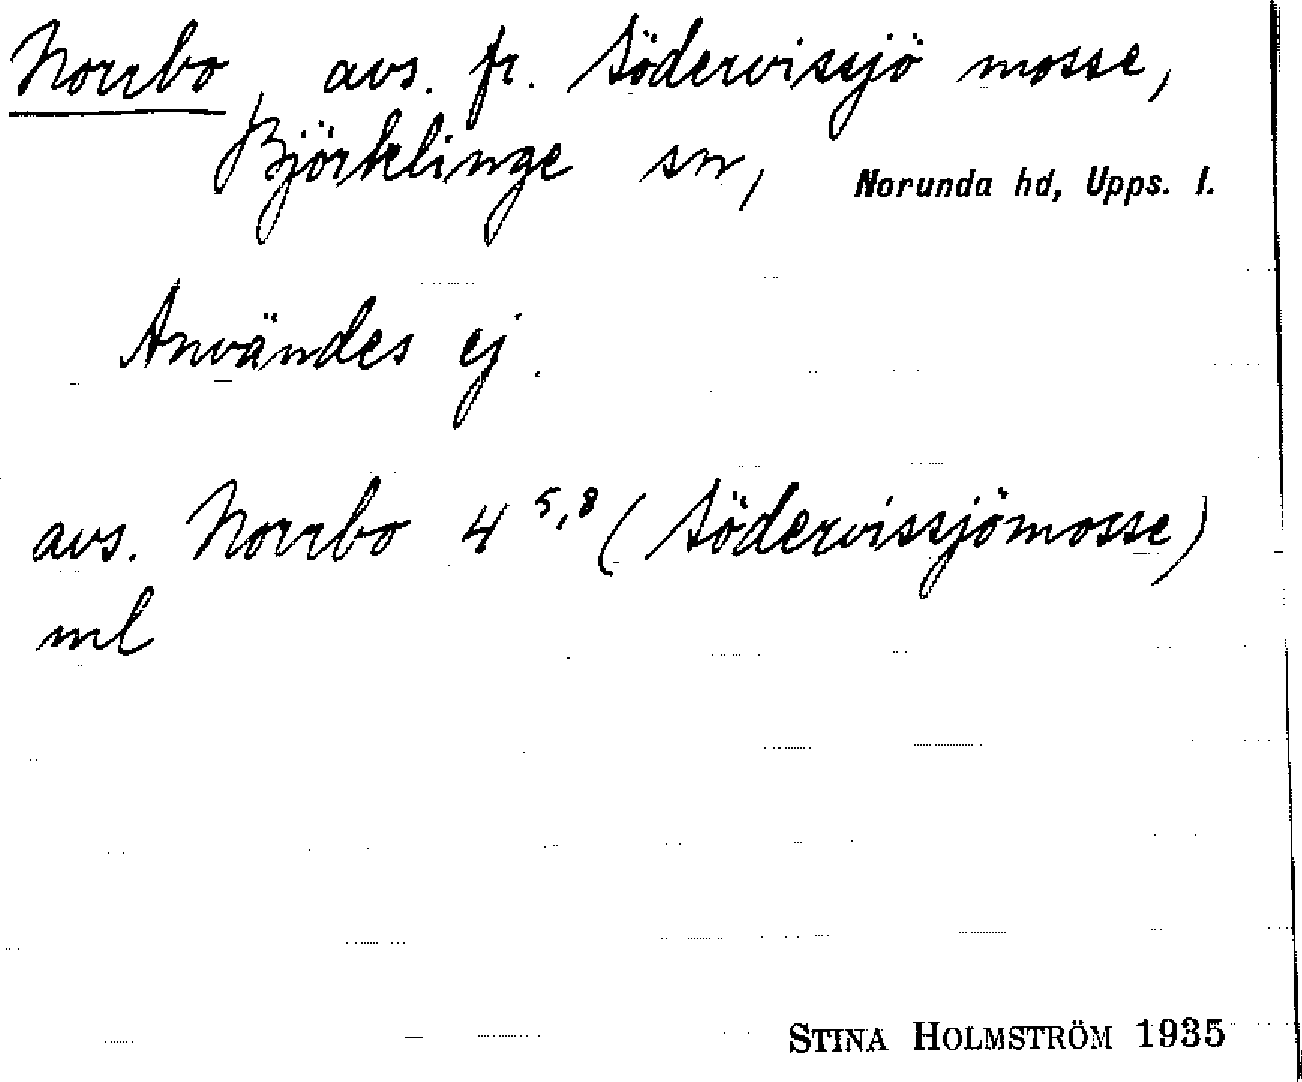 Norrbo, avs. fr. Södervissjö mosse,
Björklinge sn, Norunda hd, Upps. l.
Användes ej.
avs. Norrbo 4 5,8 (Södervissjömosse)
ml
STINA HOLMSTRÖM 1935